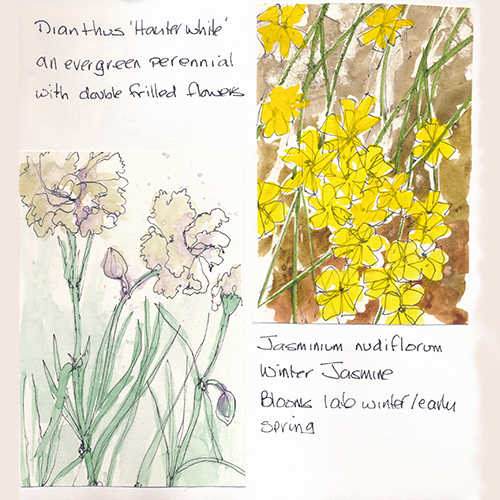 Dianthus 'Haytor White'
an evergreen perennial
with double frilled flowers
Jasminium nudiflorum
Winter Jasmine
Blooms late winter/early
spring